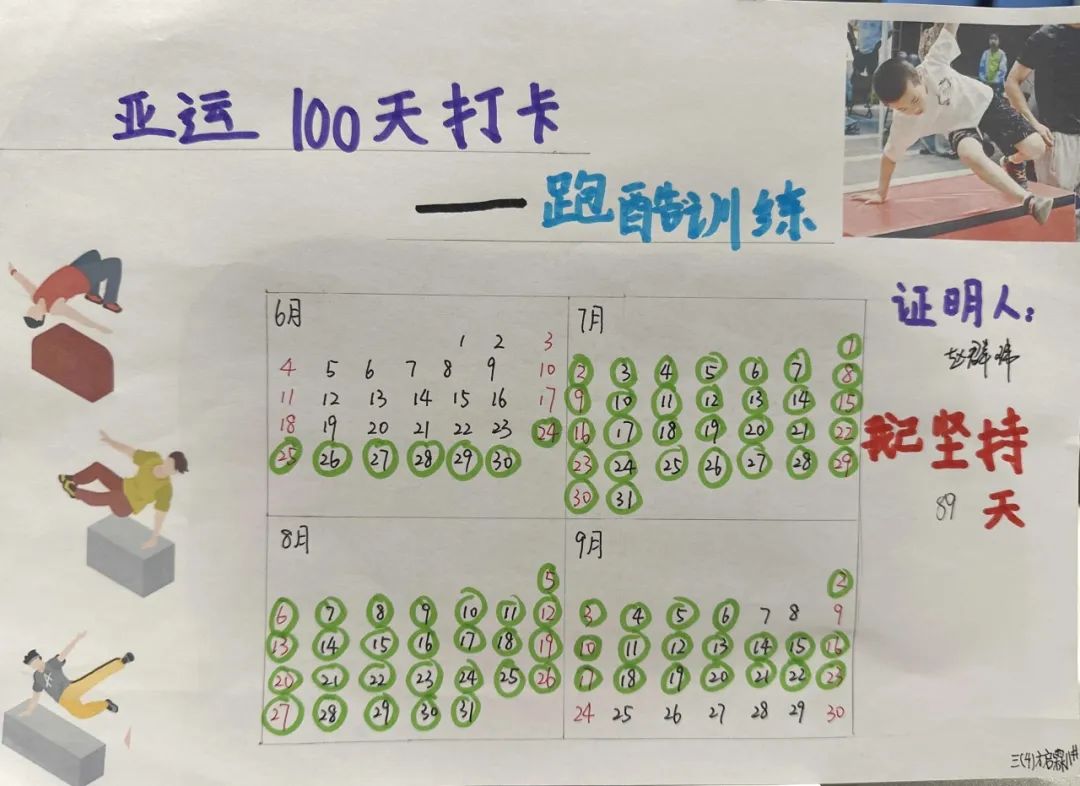 亚运 100天打卡
——跑酷训练
证明人：
赵群玮
我已坚持
89 天
6月
1 2 3
4 5 6 7 8 9 10
11 12 13 14 15 16 17
18 19 20 21 22 23 24
25 26 27 28 29 30
7月
1
2 3 4 5 6 7 8
9 10 11 12 13 14 15
16 17 18 19 20 21 22
23 24 25 26 27 28 29
30 31
8月
5
6 7 8 9 10 11 12
13 14 15 16 17 18 19
20 21 22 23 24 25 26
27 28 29 30 31
9月
2
3 4 5 6 7 8 9
10 11 12 13 14 15 16
17 18 19 20 21 22 23
24 25 26 27 28 29 30
三(4)